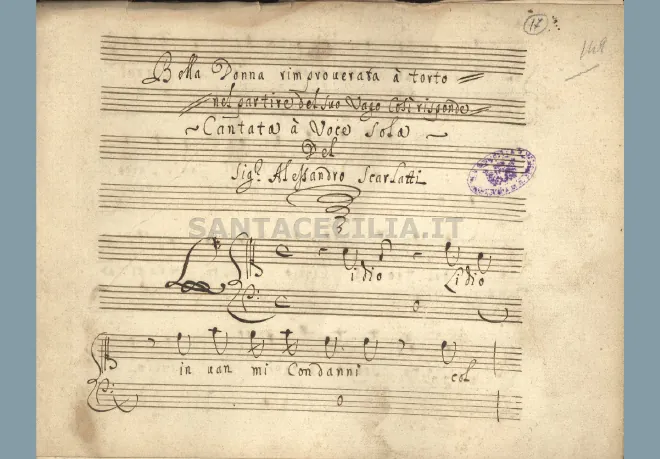 17
148
Bella Donna rimprouerata à torto
nel partire del suo Vago Così risponde
Cantata à Voce sola
Del
Sig.r Alessandro Scarlatti
SANTACECILIA.IT
Lidio Lidio
in uan mi Condanni col